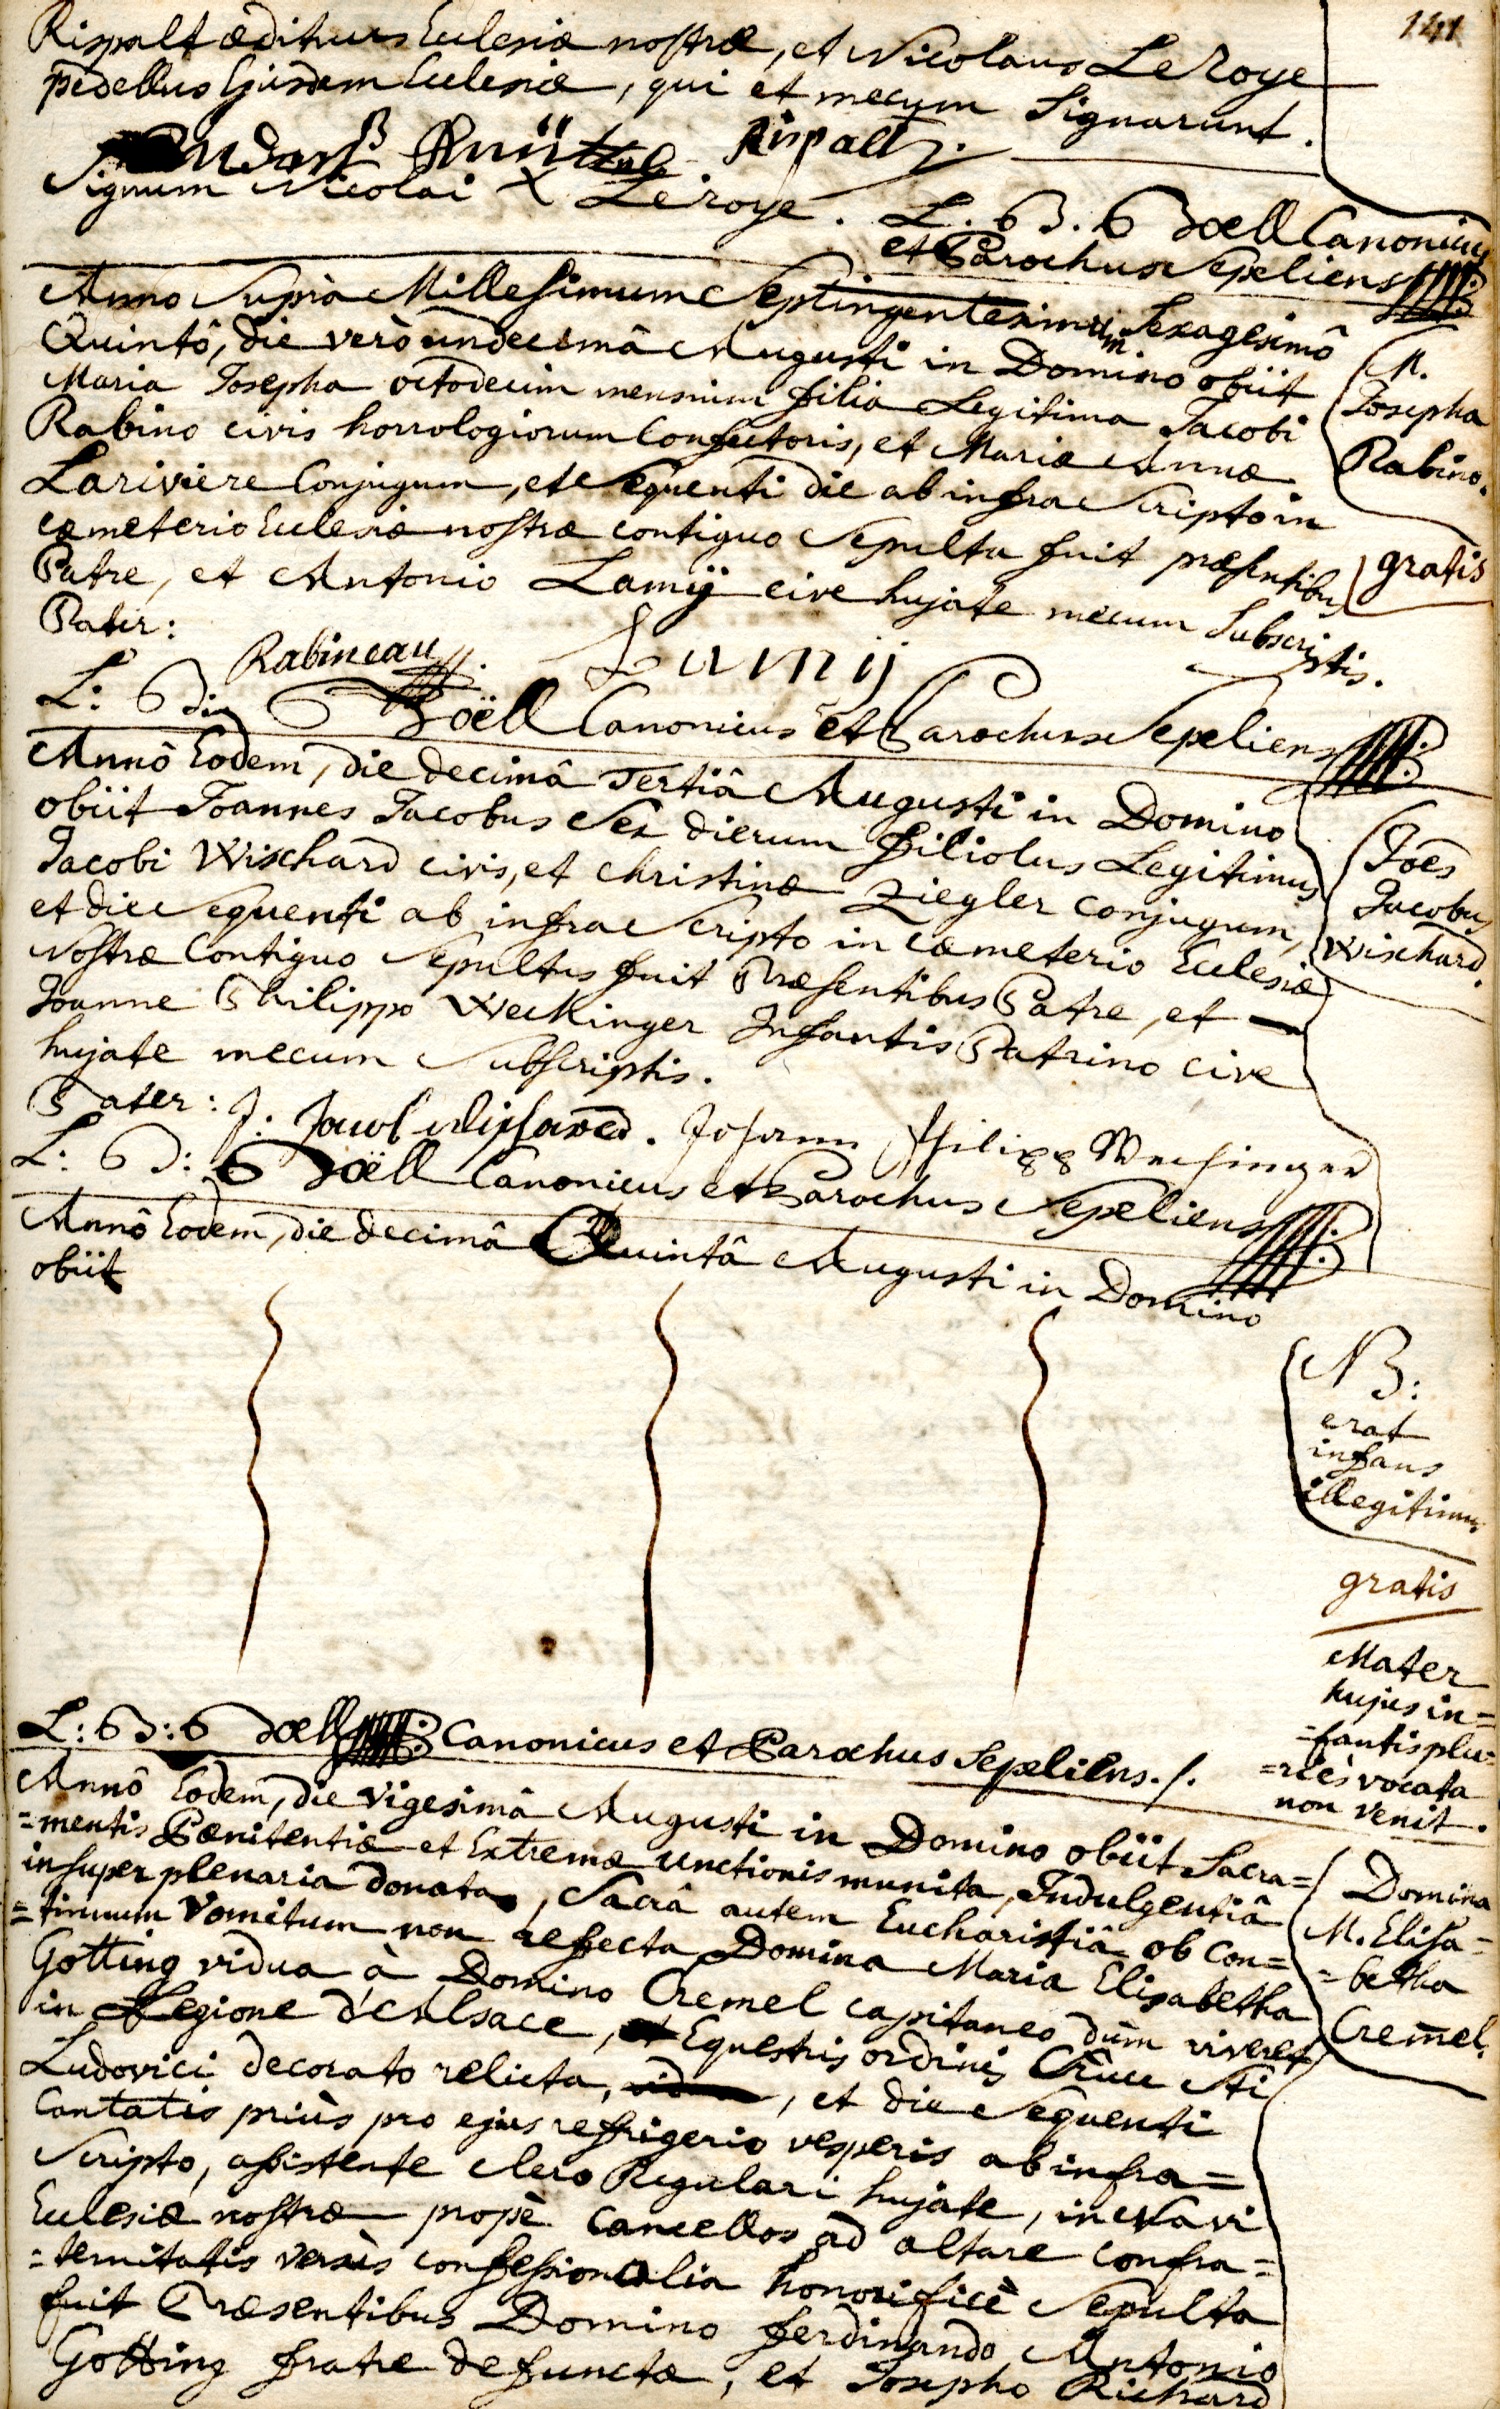 141
Rispalt ædituus Eclesiæ nostræ, et Nicolaus Le Roye
pedellus Ejusdem Eclesiæ, qui et mecum Signarunt.
Rispalt.
Signum Nicolai X Le roye. L. B. B Doell Canonicus
et Parochus Sepeliens
Anno Supra Millesimum Septingentesimum Sexagesimô
Quintô, die verò undecimâ Augusti in Domino obiit
Maria Josepha octodecim mensium filia Legitima Jacobi
Rabino civis horrologiorum Confectoris, et Mariæ Annæ
Lariviere Conjugum, et Sequenti die ab infra Scripto in
cæmeterio Eclesiæ nostræ contiguo Sepulta fuit præsentibus
Patre, et Antonio Lamij cive hujate mecum Subscriptis.
M.
Josepha
Rabino.
gratis
Pater: Rabineau Lamij
L: B: Doëll Canonicus et Parochus Sepeliens
Annô Eodem, die decimâ Tertiâ Augusti in Domino
obiit Joannes Jacobus Sex dierum filiolus Legitimus
Jacobi Wischard civis, et Christinæ Ziegler conjugum,
et die Sequenti ab infra Scripto in cæmeterio Eclesiæ
Nostræ Contiguo Sepultus fuit Præsentibus Patre, et
Joanne Philippo Weckinger Infantis Patrino cive
hujate mecum Subscriptis.
Joës
Jacobus
Wischard.
Pater: J. Jacob Wischard. Johann Philipp Weckinger
L: B: Doëll Canonicus et Parochus Sepeliens
Annô Eodem, die decimâ Quintâ Augusti in Domino
obiit
NB:
erat
infans
illegitimus
gratis
Mater
hujus in=
=fantis plu=
=riès vocata
non venit.
L: B: Doell Canonicus et Parochus Sepeliens./.
Annô Eodem, die Vigesimâ Augusti in Domino obiit Sacra=
=mentis Pænitentiæ et Extremæ unctionis munita, Indulgentiâ
insuper plenaria donata, Sacrâ autem Eucharistiâ ob con=
=tinuum Vomitum non refecta Domina Maria Elisabetha
Gotting vidua à Domino Cremel capitaneo dùm viveret
in Legione d'Alsace, Equestris ordinis Cruce Sti
Ludovici decorato relicta, , et die Sequenti
Cantatis priùs pro ejus refrigerio vesperis ab infra=
Scripto, assistente clero Regulari hujate, in Navi
Eclesiæ nostræ propè Cancellos ad altare confra=
=ternitatis versùs confessionalia honorificè Sepulta
fuit Præsentibus Domino ferdinando Antonio
Gotting fratre defunctæ, et Josepho Richard
Domina
M. Elisa=
=betha
Cremel.